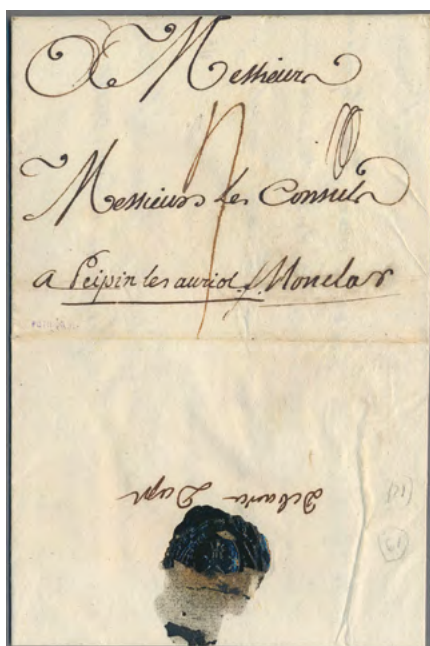 A Messieurs
Messieurs les Consuls
a Peipin les auriol. Monclar
(21)
(61)